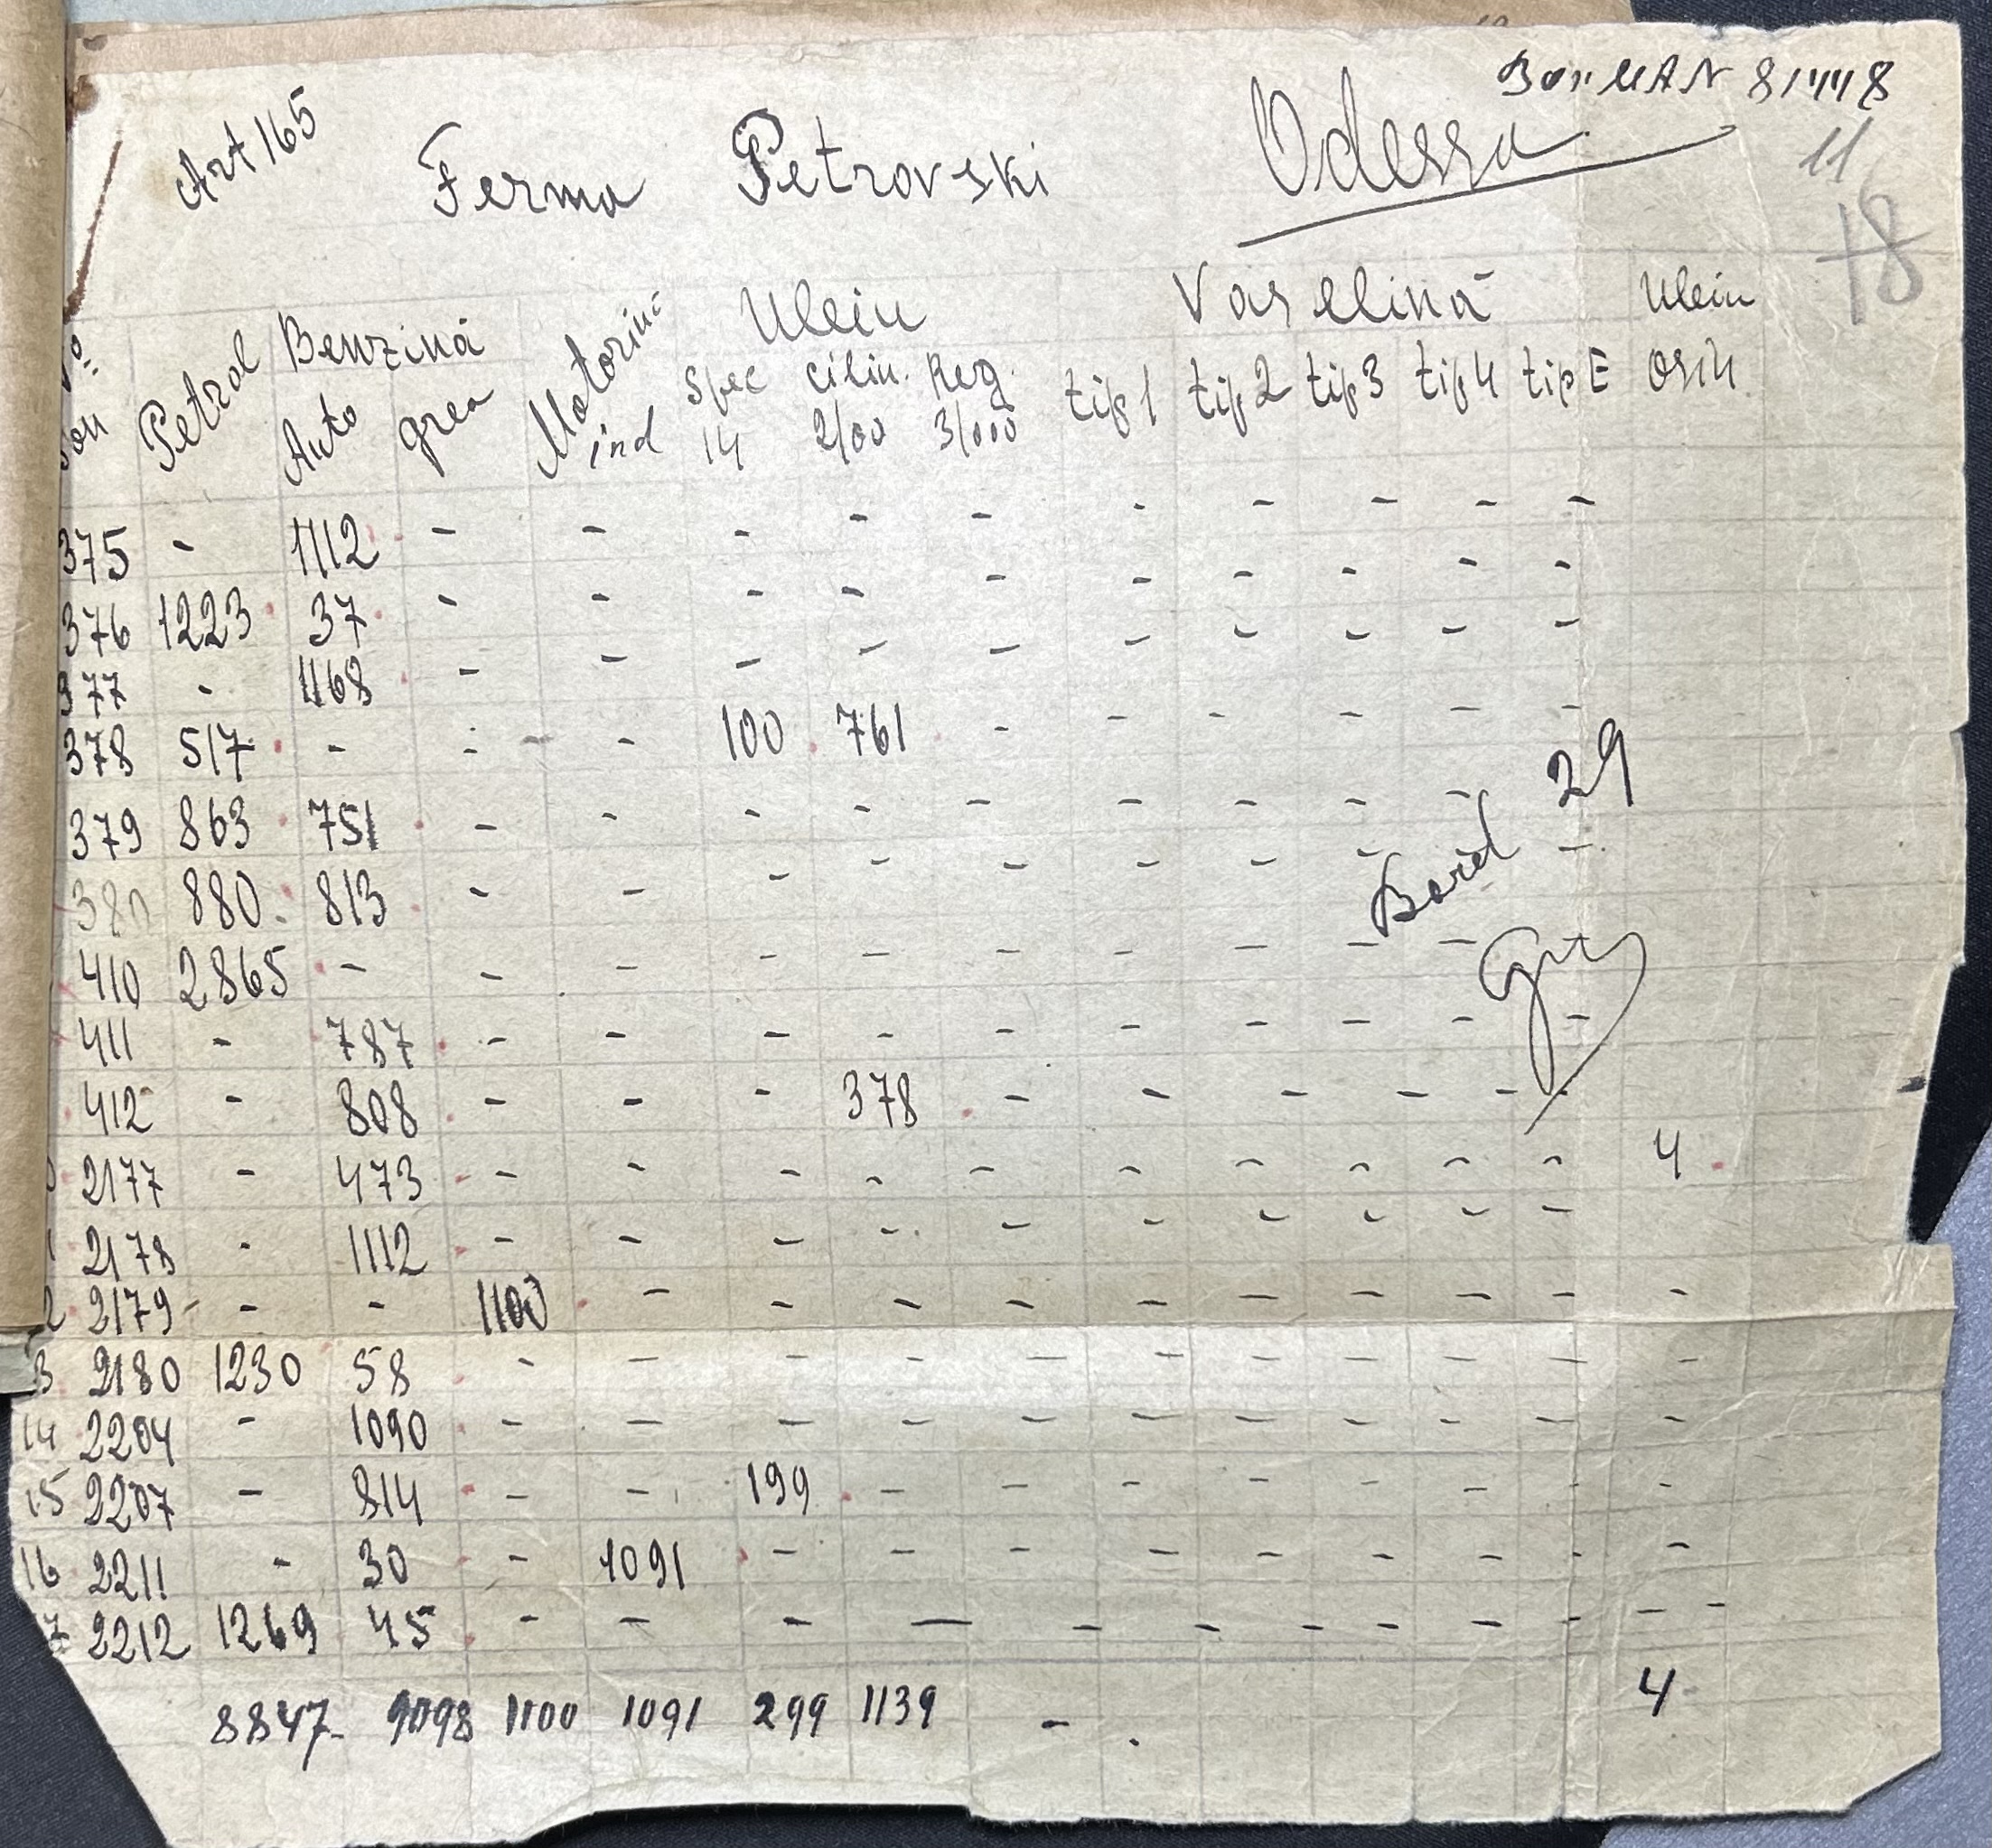 Art 165 Ferma Petrovski Odessa
81448
11
18
No Petrol Benzină Motorină Ulein Vaselină Ulein
bon Auto grea ind Spec 14 cilin. 2/00 Reg. 3/000 tip 1 tip 2 tip 3 tip 4 tip E osii
375 - 1112 - - - - - - - - - -
376 1223 37 - - - - - - - - - -
377 - 1168 - - - - - - - - - -
378 517 - - - 100 761 - - - - - -
379 863 751 - - - - - - - - -
29
380 880 813 - - - - - - - - -
410 2865 - - - - - - - - - -
411 - 787 - - - - - - - - - -
412 - 808 - - - 378 - - - - - -
2177 - 473 - - - - - - - - - - 4
2178 - 1112 - - - - - - - - - -
2 2179 - - 1100 - - - - - - - - - -
3 2180 1230 58 - - - - - - - - - - -
14 2204 - 1090 - - - - - - - - - - -
15 2207 - 814 - - 199 - - - - - - - -
16 2211 - 30 - 1091 - - - - - - - - -
7 2212 1269 45 - - - - - - - - - - -
8847 9098 1100 1091 299 1139 - 4